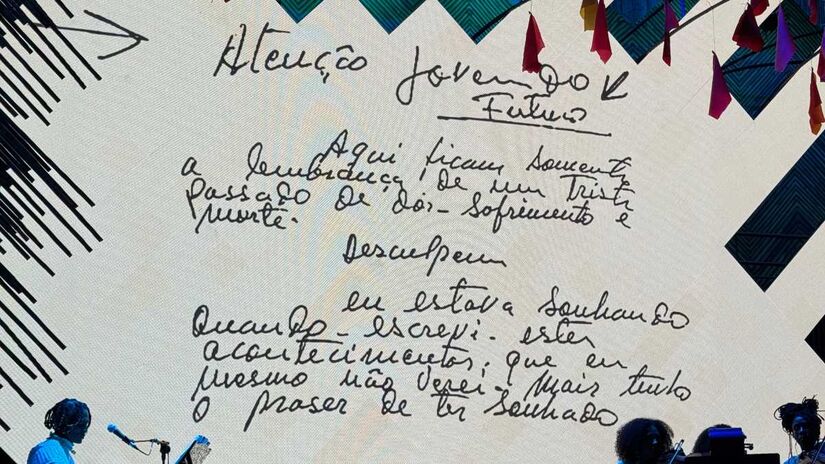 Atenção Jovem do
Futuro
Aqui ficam somente
a lembrança de um triste
passado de dôr - sofrimento e
morte.
Desculpem
eu estava sonhando
Quando - escrevi - estes
acontecimentos, que eu
mesmo não verei - mais tenho
o praser de ter sonhado